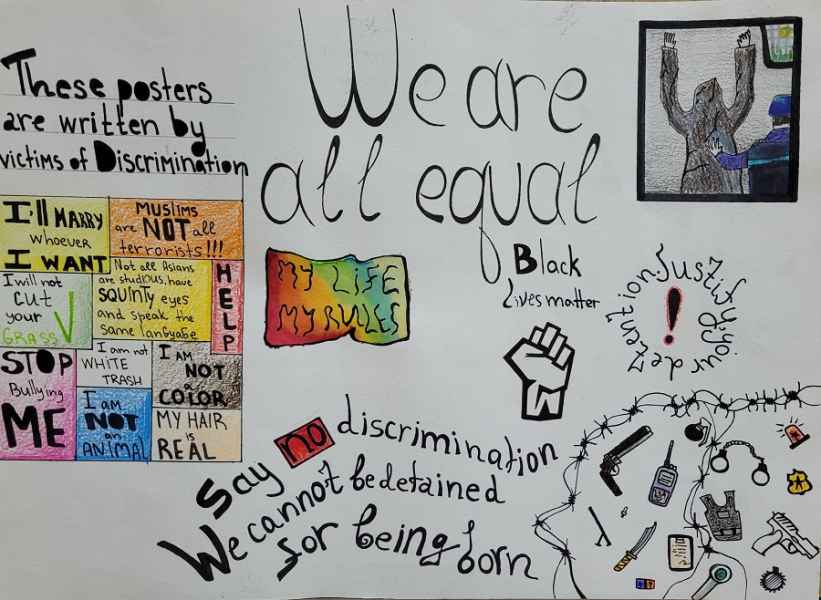 We are
all equal
These posters
are written by
victims of Discrimination
I'll MARRY
whoever
I WANT
MUSLIMS
are NOT all
terrorists!!!
I will not
cut
your
GRASS
Not all Asians
are studious, have
SQUINTY eyes
and speak the
same language
HELP
STOP
Bullying
ME
I am not
WHITE
TRASH
I AM
NOT
a
COLOR
I am
NOT
an
ANIMAL
MY HAIR
is
REAL
MY LIFE
MY RULES
Black
Lives matter
Justify your detention
!
Say no discrimination
We cannot be detained
for being born